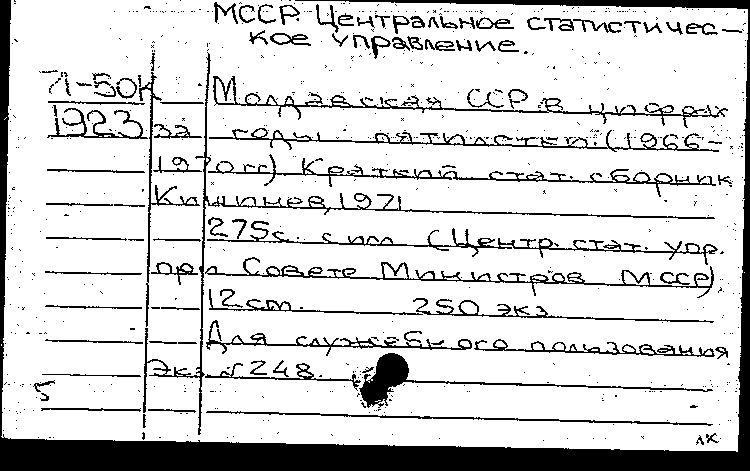 МССР. Центральное статистичес-
кое управление.
71-50К
1923
Молдавская ССР в цифрах
за годы пятилетки. (1966-
1970 гг) Краткий стат. сборник
Кишинев, 1971
275с. с ил (Центр. стат. упр.
при Совете Министров МССР)
12 см. 250 экз
Для служебного пользования
Экз. № 248.
5
АК